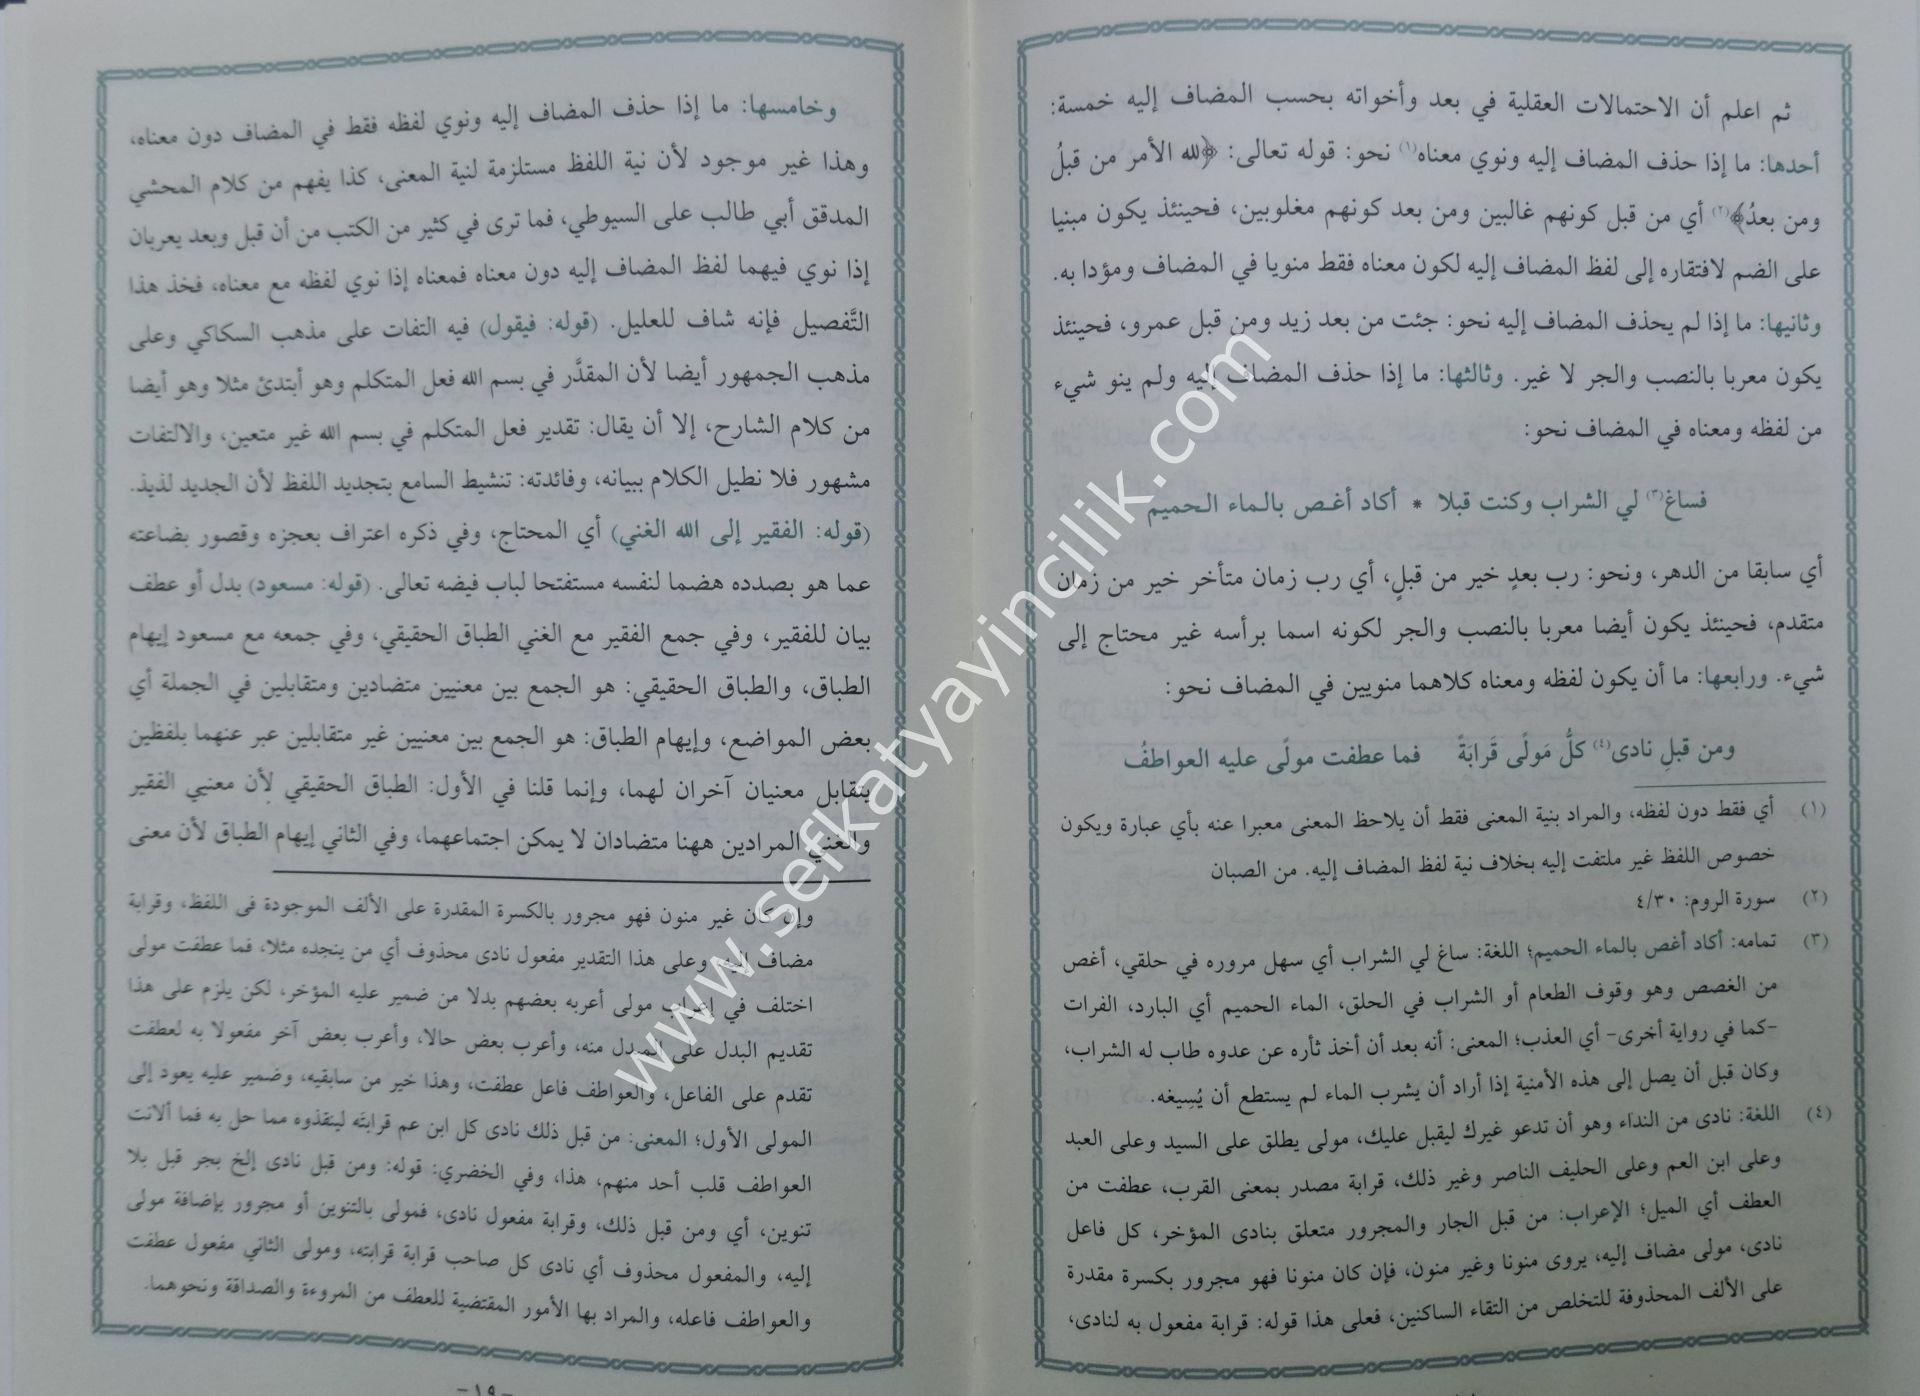 ثم اعلم أن الاحتمالات العقلية في بعد وأخواته بحسب المضاف إليه خمسة:
أحدها: ما إذا حذف المضاف إليه ونوي معناه(١) نحو: قوله تعالى: ﴿لله الأمر من قبلُ
ومن بعدُ﴾(٢) أي من قبل كونهم غالبين ومن بعد كونهم مغلوبين، فحينئذ يكون مبنيا
على الضم لافتقاره إلى لفظ المضاف إليه لكون معناه فقط منويا في المضاف ومؤدا به.
وثانيها: ما إذا لم يحذف المضاف إليه نحو: جئت من بعد زيد ومن قبل عمرو، فحينئذ
يكون معربا بالنصب والجر لا غير. وثالثها: ما إذا حذف المضاف إليه ولم ينو شيء
من لفظه ومعناه في المضاف نحو:
فساغ(٣) لي الشراب وكنت قبلا * أكاد أغص بالماء الحميم
أي سابقا من الدهر، ونحو: رب بعدٍ خير من قبلٍ، أي رب زمان متأخر خير من زمان
متقدم، فحينئذ يكون أيضا معربا بالنصب والجر لكونه اسما برأسه غير محتاج إلى
شيء. ورابعها: ما أن يكون لفظه ومعناه كلاهما منويين في المضاف نحو:
ومن قبلِ نادى(٤) كلُّ مَولًى قَرابَةً فما عطفت مولًى عليه العواطفُ
(١) أي فقط دون لفظه، والمراد بنية المعنى فقط أن يلاحظ المعنى معبرا عنه بأي عبارة ويكون
خصوص اللفظ غير ملتفت إليه بخلاف نية لفظ المضاف إليه. من الصبان
(٢) سورة الروم: ٤/٣٠
(٣) تمامه: أكاد أغص بالماء الحميم؛ اللغة: ساغ لي الشراب أي سهل مروره في حلقي، أغص
من الغصص وهو وقوف الطعام أو الشراب في الحلق، الماء الحميم أي البارد، الفرات
-كما في رواية أخرى- أي العذب؛ المعنى: أنه بعد أن أخذ ثأره عن عدوه طاب له الشراب،
وكان قبل أن يصل إلى هذه الأمنية إذا أراد أن يشرب الماء لم يستطع أن يُسِيغه.
(٤) اللغة: نادى من النداء وهو أن تدعو غيرك ليقبل عليك، مولى يطلق على السيد وعلى العبد
وعلى ابن العم وعلى الحليف الناصر وغير ذلك، قرابة مصدر بمعنى القرب، عطفت من
العطف أي الميل؛ الإعراب: من قبل الجار والمجرور متعلق بنادى المؤخر، كل فاعل
نادى، مولى مضاف إليه، يروى منونا وغير منون، فإن كان منونا فهو مجرور بكسرة مقدرة
على الألف المحذوفة للتخلص من التقاء الساكنين، فعلى هذا قوله: قرابة مفعول به لنادى،
وخامسها: ما إذا حذف المضاف إليه ونوي لفظه فقط في المضاف دون معناه،
وهذا غير موجود لأن نية اللفظ مستلزمة لنية المعنى، كذا يفهم من كلام المحشي
المدقق أبي طالب على السيوطي، فما ترى في كثير من الكتب من أن قبل وبعد يعربان
إذا نوي فيهما لفظ المضاف إليه دون معناه فمعناه إذا نوي لفظه مع معناه، فخذ هذا
التَّفصيل فإنه شاف للعليل. (قوله: فيقول) فيه التفات على مذهب السكاكي وعلى
مذهب الجمهور أيضا لأن المقدَّر في بسم الله فعل المتكلم وهو أبتدئ مثلا وهو أيضا
من كلام الشارح، إلا أن يقال: تقدير فعل المتكلم في بسم الله غير متعين، والالتفات
مشهور فلا نطيل الكلام ببيانه، وفائدته: تنشيط السامع بتجديد اللفظ لأن الجديد لذيذ.
(قوله: الفقير إلى الله الغني) أي المحتاج، وفي ذكره اعتراف بعجزه وقصور بضاعته
عما هو بصدده هضما لنفسه مستفتحا لباب فيضه تعالى. (قوله: مسعود) بدل أو عطف
بيان للفقير، وفي جمع الفقير مع الغني الطباق الحقيقي، وفي جمعه مع مسعود إيهام
الطباق، والطباق الحقيقي: هو الجمع بين معنيين متضادين ومتقابلين في الجملة أي
بعض المواضع، وإيهام الطباق: هو الجمع بين معنيين غير متقابلين عبر عنهما بلفظين
يتقابل معنيان آخران لهما، وإنما قلنا في الأول: الطباق الحقيقي لأن معنيي الفقير
والغني المرادين ههنا متضادان لا يمكن اجتماعهما، وفي الثاني إيهام الطباق لأن معنى
وإن كان غير منون فهو مجرور بالكسرة المقدرة على الألف الموجودة في اللفظ، وقرابة
مضاف إليه، وعلى هذا التقدير مفعول نادى محذوف أي من ينجده مثلا، فما عطفت مولى
اختلف في إعراب مولى أعربه بعضهم بدلا من ضمير عليه المؤخر، لكن يلزم على هذا
تقديم البدل على المبدل منه، وأعرب بعض حالا، وأعرب بعض آخر مفعولا به لعطفت
تقدم على الفاعل، والعواطف فاعل عطفت، وهذا خير من سابقيه، وضمير عليه يعود إلى
المولى الأول؛ المعنى: من قبل ذلك نادى كل ابن عم قرابتَه لينقذوه مما حل به فما ألانت
العواطف قلب أحد منهم، هذا، وفي الخضري: قوله: ومن قبل نادى إلخ بجر قبل بلا
تنوين، أي ومن قبل ذلك، وقرابة مفعول نادى، فمولى بالتنوين أو مجرور بإضافة مولى
إليه، والمفعول محذوف أي نادى كل صاحب قرابة قرابته، ومولى الثاني مفعول عطفت
والعواطف فاعله، والمراد بها الأمور المقتضية للعطف من المروءة والصداقة ونحوهما.
-١٩-
www.sefkatyayincilik.com